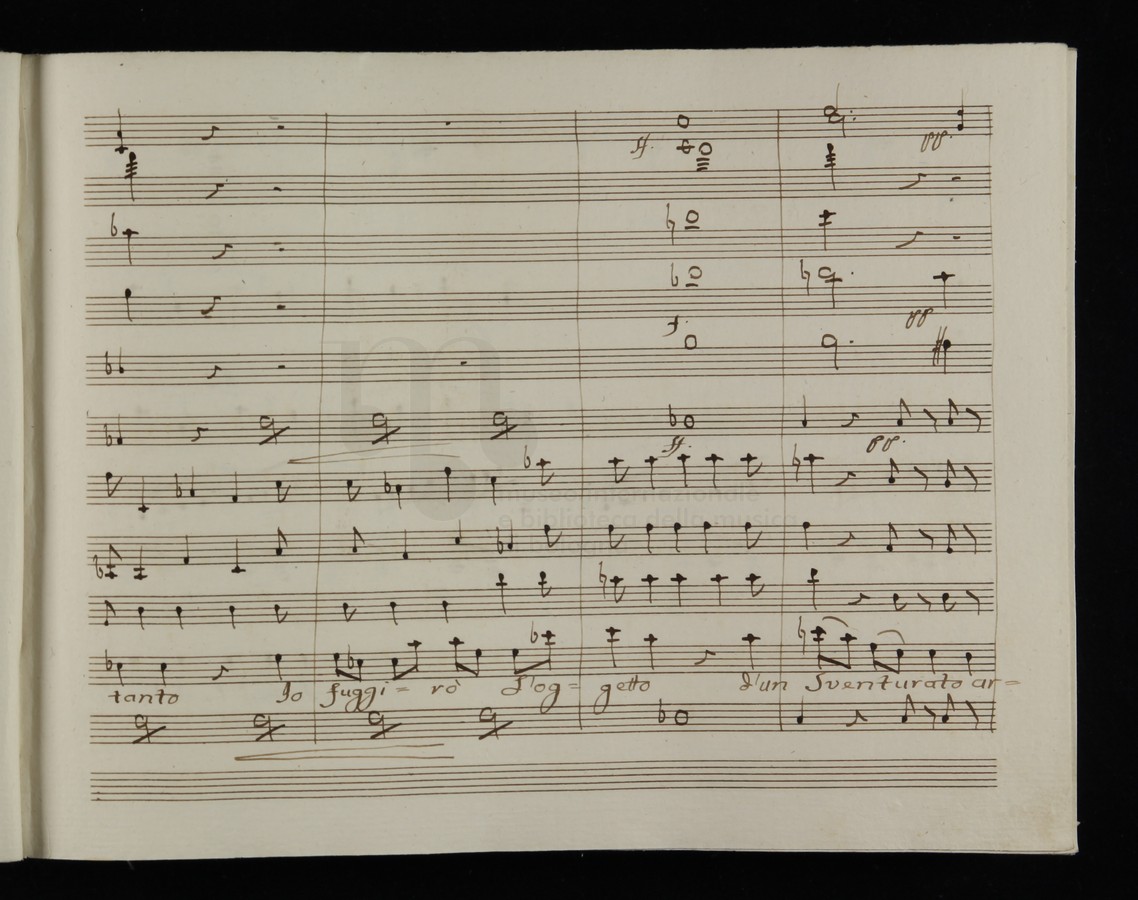 ff.
pp.
f.
pp
ff.
pp.
museo internazionale
e biblioteca della musica
tanto Io fuggi = rò L'og = getto d'un Sventurato ar =